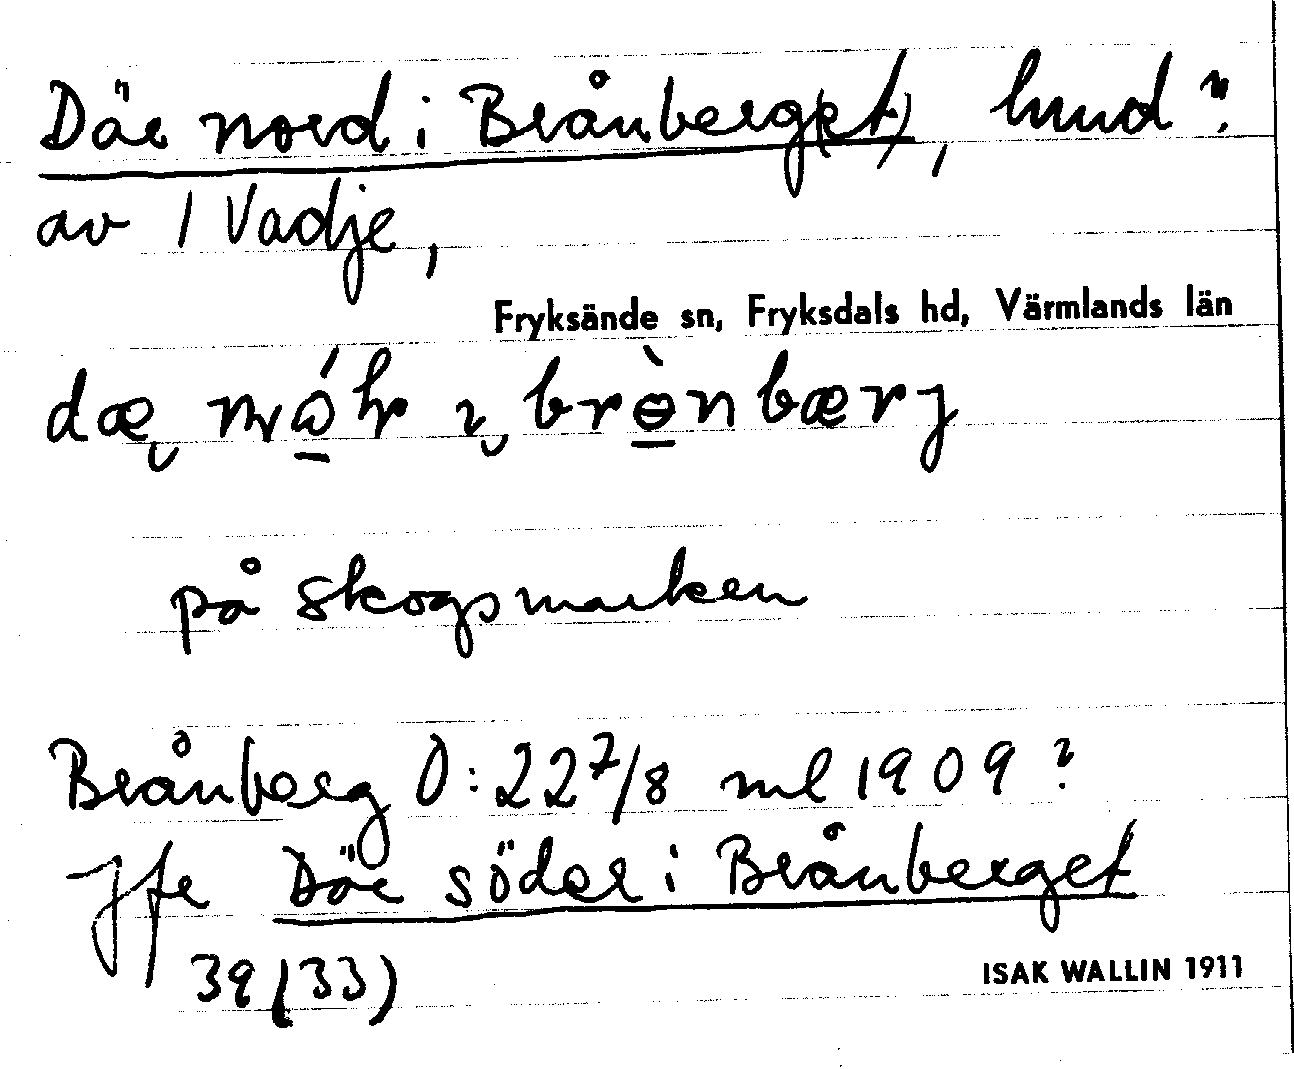 Där nord i Brånberg(et), hmd?
av 1 Vadje,
Fryksände sn, Fryksdals hd, Värmlands län
på skogsmarken
Brånberg Ö: 22 7/8 ml 1909?
Jfr Där söder i Brånberget
39 (33)
ISAK WALLIN 1911